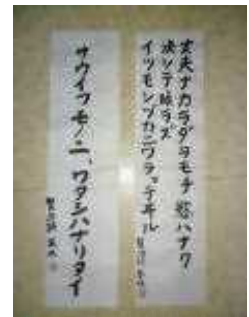 丈夫ナカラダヲモチ 慾ハナク
決シテ瞋ラズ
イツモシヅカニワラッテヰル
サウイフモノニ、ワタシハナリタイ